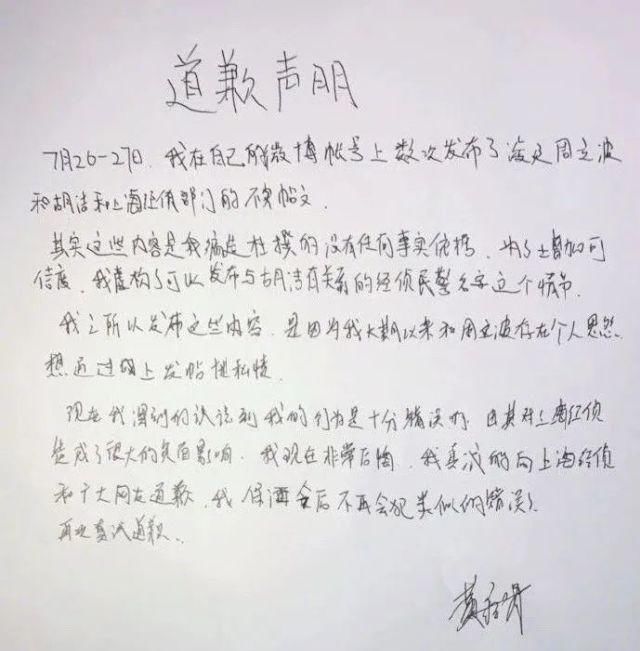 道歉声明
7月26-27日,我在自己的微博帐号上数次发布了涉及周立波
和胡洁和上海经侦部门的不实帖文.
其实这些内容是我编造杜撰的没有任何事实依据,为了增加可
信度,我虚构了可以发布与胡洁有关系的经侦民警名字这个情节.
我之所以发布这些内容,是因为我长期以来和周立波存在个人恩怨.
想通过网上发帖泄私愤.
现在我深刻的认识到我的行为是十分错误的,尤其对上海经侦
造成了很大的负面影响.我现在非常后悔,我真诚的向上海经侦
和广大网友道歉,我保证今后不再会犯类似的错误.
再次真诚道歉.
黄